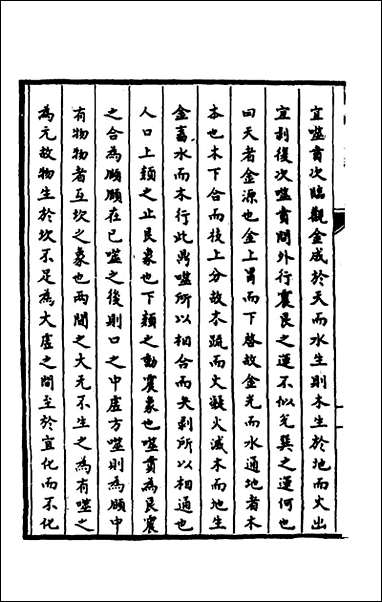 宜噬賁次臨觀金成於天而水生則木生於地而火出
宜剥復次噬賁問外行震艮之運不似兌巽之運何也
曰天者金源也金上冒而下啓故金光而水通地者木
本也木下合而枝上分故木疏而火凝火滅木而地生
金畜水而木行此鼎噬所以相合而夬剥所以相通也
人口上頦之止艮象也下頦之動震象也噬賁為艮震
之合為頤頤在已噬之後則口之中虛方噬則為頤中
有物物者互坎之象也兩間之大无不生之為有噬之
為元故物生於坎不足為大虛之間至於宜化而不化